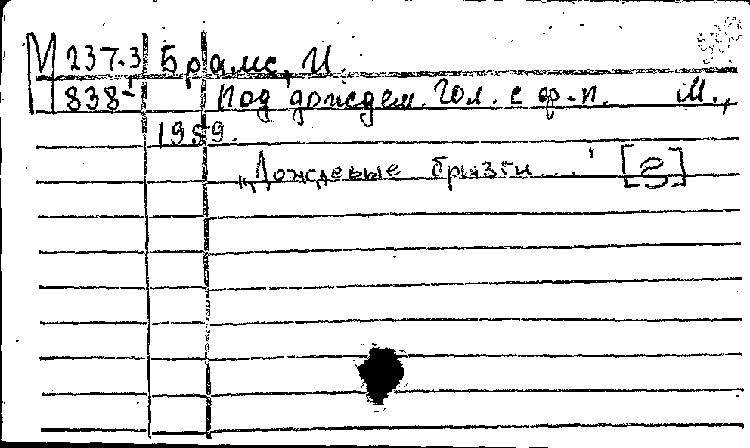 М 237.3 Брамс, И.
838-1 Под дождем. Гол. с ф-п. М.,
1959.
„Дождевые брызги..." [г]